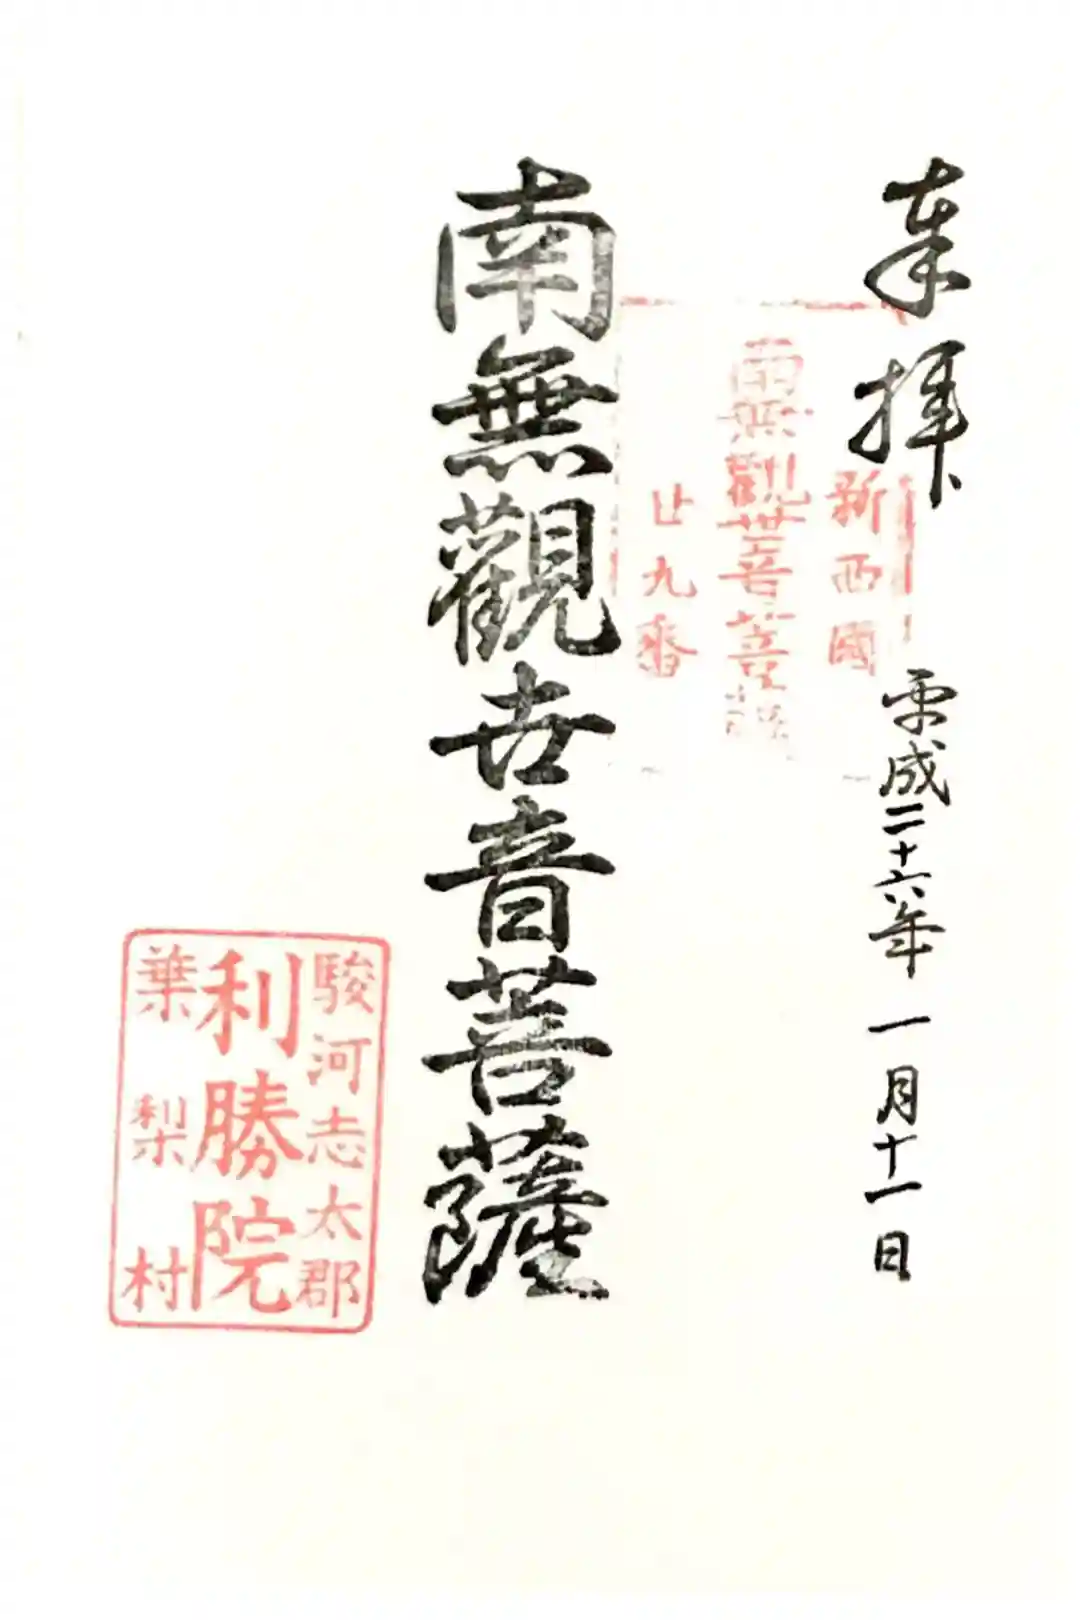 奉拝
平成二十六年一月十一日
新西國
南無觀世音菩薩
廿九番
南無觀世音菩薩
駿河志太郡
利勝院
葉梨村